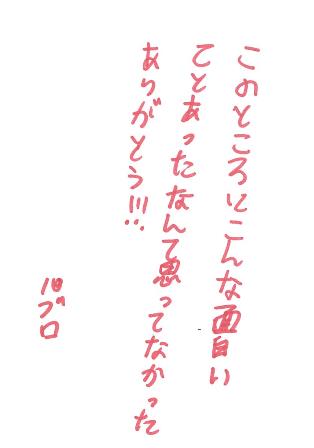 このところにこんな面白い
てとあったなんて思ってなかった
ありがとう!!!
旧ブロ